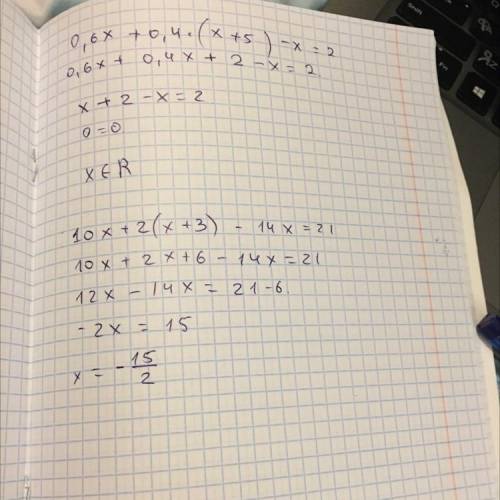 0,6x + 0,4·(x+5) - x = 2
0,6x + 0,4x + 2 - x = 2
x + 2 - x = 2
0 = 0
x ∈ R
10x + 2(x+3) - 14x = 21
10x + 2x + 6 - 14x = 21
12x - 14x = 21 - 6.
-2x = 15
x = -15/2